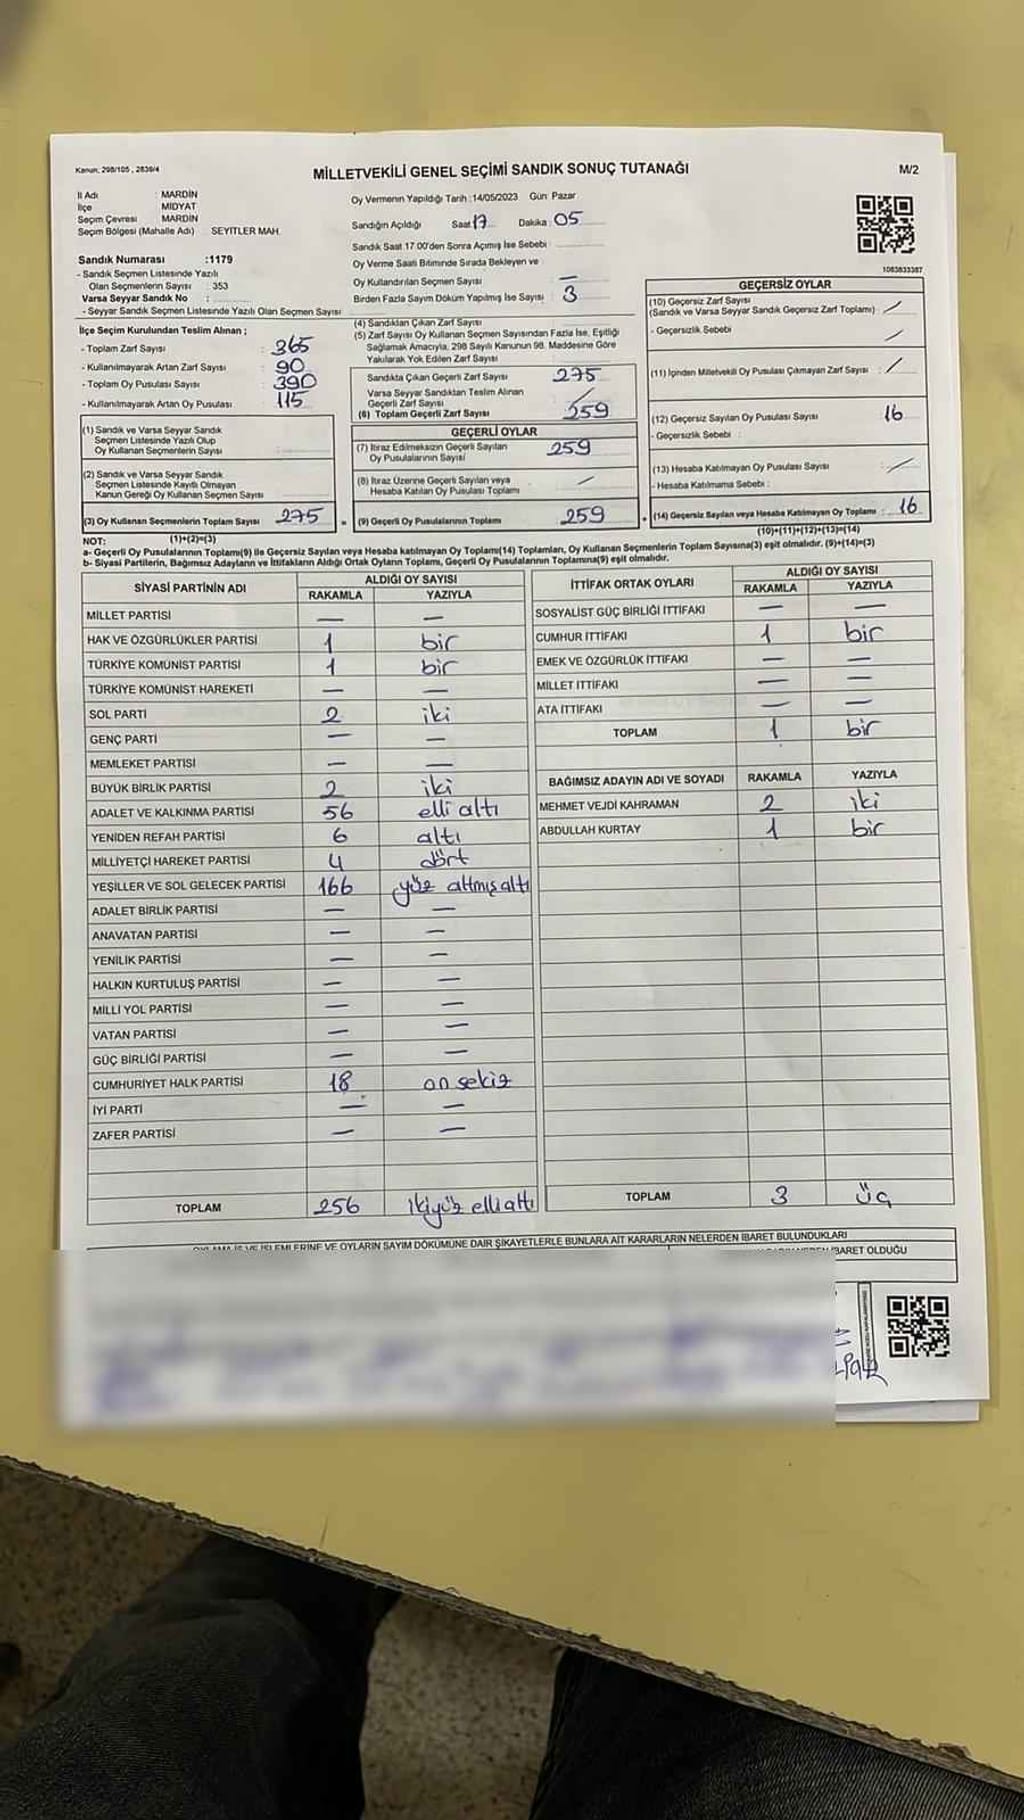 Kanun; 298/105 , 2839/4
MİLLETVEKİLİ GENEL SEÇİMİ SANDIK SONUÇ TUTANAĞI
M/2
İl Adı : MARDİN
İlçe MİDYAT
Seçim Çevresi : MARDİN
Seçim Bölgesi (Mahalle Adı) SEYİTLER MAH.
Oy Vermenin Yapıldığı Tarih :14/05/2023 Gün: Pazar
Sandığın Açıldığı Saat 17 Dakika : 05
Sandık Saat 17:00'den Sonra Açımış İse Sebebi
Oy Verme Saati Bitiminde Sırada Bekleyen ve
Oy Kullandırılan Seçmen Sayısı —
Birden Fazla Sayım Döküm Yapılmış İse Sayısı : 3
1083833387
Sandık Numarası :1179
- Sandık Seçmen Listesinde Yazılı
Olan Seçmenlerin Sayısı : 353
Varsa Seyyar Sandık No :
- Seyyar Sandık Seçmen Listesinde Yazılı Olan Seçmen Sayısı
İlçe Seçim Kurulundan Teslim Alınan ;
- Toplam Zarf Sayısı : 365
- Kullanılmayarak Artan Zarf Sayısı : 90
- Toplam Oy Pusulası Sayısı : 390
- Kullanılmayarak Artan Oy Pusulası : 115
(1) Sandık ve Varsa Seyyar Sandık
Seçmen Listesinde Yazılı Olup
Oy Kullanan Seçmenlerin Sayısı
(2) Sandık ve Varsa Seyyar Sandık
Seçmen Listesinde Kayıtlı Olmayan
Kanun Gereği Oy Kullanan Seçmen Sayısı
(3) Oy Kullanan Seçmenlerin Toplam Sayısı 275
(4) Sandıktan Çıkan Zarf Sayısı
(5) Zarf Sayısı Oy Kullanan Seçmen Sayısından Fazla İse, Eşitliği
Sağlamak Amacıyla, 298 Sayılı Kanunun 98. Maddesine Göre
Yakılarak Yok Edilen Zarf Sayısı
Sandıkta Çıkan Geçerli Zarf Sayısı 275
Varsa Seyyar Sandıktan Teslim Alınan
Geçerli Zarf Sayısı /
(6) Toplam Geçerli Zarf Sayısı 259
GEÇERLİ OYLAR
(7) İtiraz Edilmeksizin Geçerli Sayılan
Oy Pusulalarının Sayısı 259
(8) İtiraz Üzerine Geçerli Sayılan veya
Hesaba Katılan Oy Pusulası Toplamı /
= (9) Geçerli Oy Pusulalarının Toplamı 259
GEÇERSİZ OYLAR
(10) Geçersiz Zarf Sayısı
(Sandık ve Varsa Seyyar Sandık Geçersiz Zarf Toplamı) : /
- Geçersizlik Sebebi /
(11) İçinden Milletvekili Oy Pusulası Çıkmayan Zarf Sayısı : /
(12) Geçersiz Sayılan Oy Pusulası Sayısı 16
- Geçersizlik Sebebi :
(13) Hesaba Katılmayan Oy Pusulası Sayısı : /
- Hesaba Katılmama Sebebi :
+ (14) Geçersiz Sayılan veya Hesaba Katılmayan Oy Toplamı : 16
(10)+(11)+(12)+(13)=(14)
NOT: (1)+(2)=(3)
a- Geçerli Oy Pusulalarının Toplamı(9) ile Geçersiz Sayılan veya Hesaba katılmayan Oy Toplamı(14) Toplamları, Oy Kullanan Seçmenlerin Toplam Sayısına(3) eşit olmalıdır. (9)+(14)=(3)
b- Siyasi Partilerin, Bağımsız Adayların ve İttifakların Aldığı Ortak Oyların Toplamı, Geçerli Oy Pusulalarının Toplamına(9) eşit olmalıdır.
SİYASİ PARTİNİN ADI ALDIĞI OY SAYISI
RAKAMLA YAZIYLA
MİLLET PARTİSİ — —
HAK VE ÖZGÜRLÜKLER PARTİSİ 1 bir
TÜRKİYE KOMÜNİST PARTİSİ 1 bir
TÜRKİYE KOMÜNİST HAREKETİ — —
SOL PARTİ 2 iki
GENÇ PARTİ — —
MEMLEKET PARTİSİ — —
BÜYÜK BİRLİK PARTİSİ 2 iki
ADALET VE KALKINMA PARTİSİ 56 elli altı
YENİDEN REFAH PARTİSİ 6 altı
MİLLİYETÇİ HAREKET PARTİSİ 4 dört
YEŞİLLER VE SOL GELECEK PARTİSİ 166 yüz altmış altı
ADALET BİRLİK PARTİSİ — —
ANAVATAN PARTİSİ — —
YENİLİK PARTİSİ — —
HALKIN KURTULUŞ PARTİSİ — —
MİLLİ YOL PARTİSİ — —
VATAN PARTİSİ — —
GÜÇ BİRLİĞİ PARTİSİ — —
CUMHURİYET HALK PARTİSİ 18 on sekiz
İYİ PARTİ — —
ZAFER PARTİSİ — —
TOPLAM 256 ikiyüz elli altı
İTTİFAK ORTAK OYLARI ALDIĞI OY SAYISI
RAKAMLA YAZIYLA
SOSYALİST GÜÇ BİRLİĞİ İTTİFAKI — —
CUMHUR İTTİFAKI 1 bir
EMEK VE ÖZGÜRLÜK İTTİFAKI — —
MİLLET İTTİFAKI — —
ATA İTTİFAKI — —
TOPLAM 1 bir
BAĞIMSIZ ADAYIN ADI VE SOYADI RAKAMLA YAZIYLA
MEHMET VEJDİ KAHRAMAN 2 iki
ABDULLAH KURTAY 1 bir
TOPLAM 3 üç
İŞLEMLERİNE VE OYLARIN SAYIM DÖKÜMÜNE DAİR ŞİKAYETLERLE BUNLARA AİT KARARLARIN NELERDEN İBARET BULUNDUKLARI
İBARET OLDUĞU